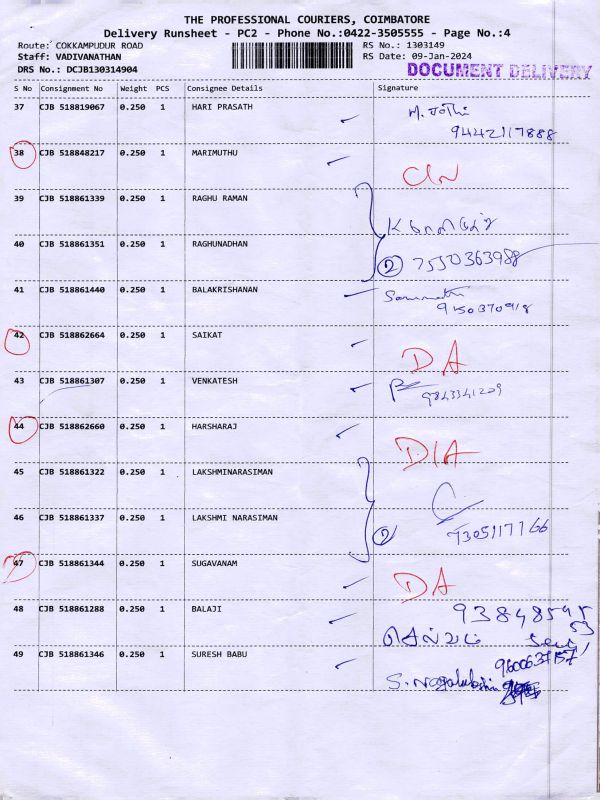 THE PROFESSIONAL COURIERS, COIMBATORE
Delivery Runsheet - PC2 - Phone No.:0422-3505555 - Page No.:4
Route: COKKAMPUDUR ROAD RS No.: 1303149
Staff: VADIVANATHAN RS Date: 09-Jan-2024
DRS No.: DCJB130314904 DOCUMENT DELIVERY
S No Consignment No Weight PCS Consignee Details Signature
37 CJB 518819067 0.250 1 HARI PRASATH M. Jothi
9442117888
38 CJB 518848217 0.250 1 MARIMUTHU
39 CJB 518861339 0.250 1 RAGHU RAMAN
40 CJB 518861351 0.250 1 RAGHUNADHAN
2 7550363988
41 CJB 518861440 0.250 1 BALAKRISHANAN
9150370918
42 CJB 518862664 0.250 1 SAIKAT
DA
43 CJB 518861307 0.250 1 VENKATESH
9843341209
44 CJB 518862660 0.250 1 HARSHARAJ
DIA
45 CJB 518861322 0.250 1 LAKSHMINARASIMAN
46 CJB 518861337 0.250 1 LAKSHMI NARASIMAN
2 7305117166
47 CJB 518861344 0.250 1 SUGAVANAM
DA
48 CJB 518861288 0.250 1 BALAJI
செல்வம்
49 CJB 518861346 0.250 1 SURESH BABU
9600637157
S. Nagalakshmi